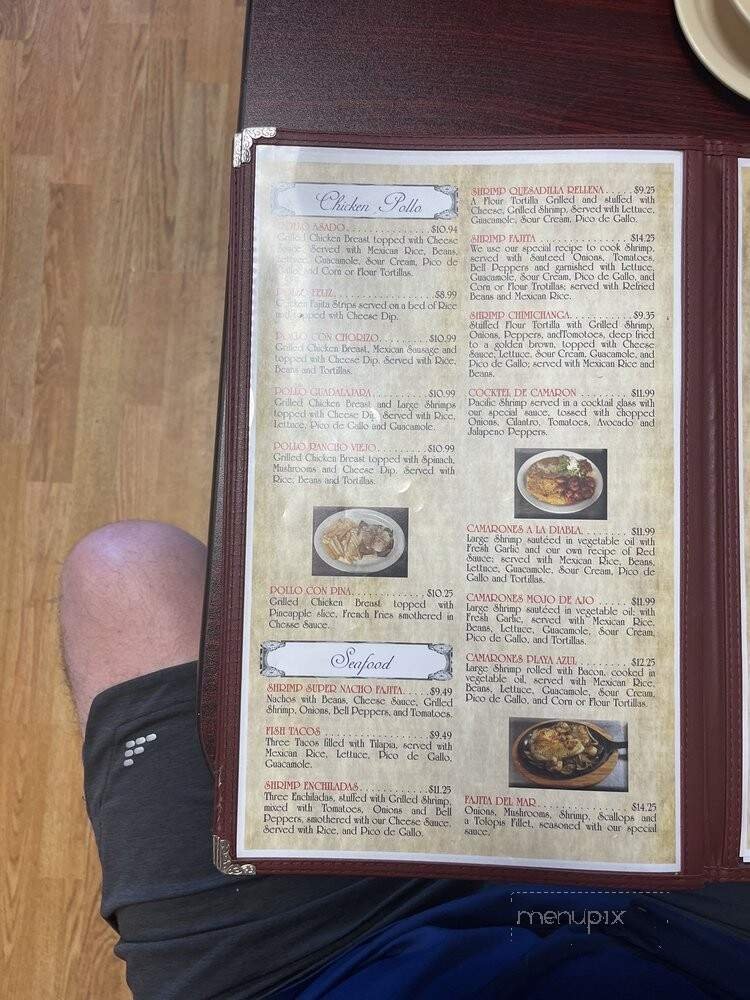 Chicken Pollo
ASADO $10.94
Grilled Chicken Breast topped with Cheese
Served with Mexican Rice, Beans,
Guacamole, Sour Cream, Pico de
and Corn or Flour Tortillas.
FELIZ $8.99
Chicken Fajita Strips served on a bed of Rice
and topped with Cheese Dip.
POLLO CON CHORIZO $10.99
Grilled Chicken Breast, Mexican Sausage and
topped with Cheese Dip. Served with Rice,
Beans and Tortillas.
POLLO GUADALAJARA $10.99
Grilled Chicken Breast and Large Shrimps
topped with Cheese Dip Served with Rice,
Lettuce, Pico de Gallo and Guacamole.
POLLO RANCHO VIEJO $10.99
Grilled Chicken Breast topped with Spinach,
Mushrooms and Cheese Dip. Served with
Rice, Beans and Tortillas.
POLLO CON PINA $10.25
Grilled Chicken Breast topped with
Pineapple slice, French Fries smothered in
Chesse Sauce.
Seafood
SHRIMP SUPER NACHO FAJITA $9.49
Nachos with Beans, Cheese Sauce, Grilled
Shrimp, Onions, Bell Peppers, and Tomatoes.
FISH TACOS $9.49
Three Tacos filled with Tilapia, served with
Mexican Rice, Lettuce, Pico de Gallo,
Guacamole.
SHRIMP ENCHILADAS $11.25
Three Enchiladas, stuffed with Grilled Shrimp,
mixed with Tomatoes, Onions and Bell
Peppers, smothered with our Cheese Sauce.
Served with Rice, and Pico de Gallo.
SHRIMP QUESADILLA RELLENA $9.25
A Flour Tortilla Grilled and stuffed with
Cheese, Grilled Shrimp. Served with Lettuce,
Guacamole, Sour Cream, Pico de Gallo.
SHRIMP FAJITA $14.25
We use our special recipe to cook Shrimp,
served with Sauteed Onions, Tomatoes,
Bell Peppers and garnished with Lettuce,
Guacamole, Sour Cream, Pico de Gallo, and
Corn or Flour Trotillas; served with Refried
Beans and Mexican Rice.
SHRIMP CHIMICHANGA $9.35
Stuffed Flour Tortilla with Grilled Shrimp,
Onions, Peppers, andTomotoes, deep fried
to a golden brown, topped with Cheese
Sauce, Lettuce, Sour Cream, Guacamole, and
Pico de Gallo; served with Mexican Rice and
Beans.
COCKTEL DE CAMARON $11.99
Pacific Shrimp served in a cocktail glass with
our special sauce, tossed with chopped
Onions, Cilantro, Tomatoes, Avocado and
Jalapeno Peppers.
CAMARONES A LA DIABLA $11.99
Large Shrimp sautéed in vegetable oil with
Fresh Garlic and our own recipe of Red
Sauce; served with Mexican Rice, Beans,
Lettuce, Guacamole, Sour Cream, Pico de
Gallo and Tortillas.
CAMARONES MOJO DE AJO $11.99
Large Shrimp sautéed in vegetable oil; with
Fresh Garlic, served with Mexican Rice,
Beans, Lettuce, Guacamole, Sour Cream,
Pico de Gallo, and Tortillas.
CAMARONES PLAYA AZUL $12.25
Large Shrimp rolled with Bacon, cooked in
vegetable oil, served with Mexican Rice,
Beans, Lettuce, Guacamole, Sour Cream,
Pico de Gallo, and Corn or Flour Tortillas.
FAJITA DEL MAR $14.25
Onions, Mushrooms, Shrimp, Scallops and
a Tolopis Fillet, seasoned with our special
sauce.
menupix